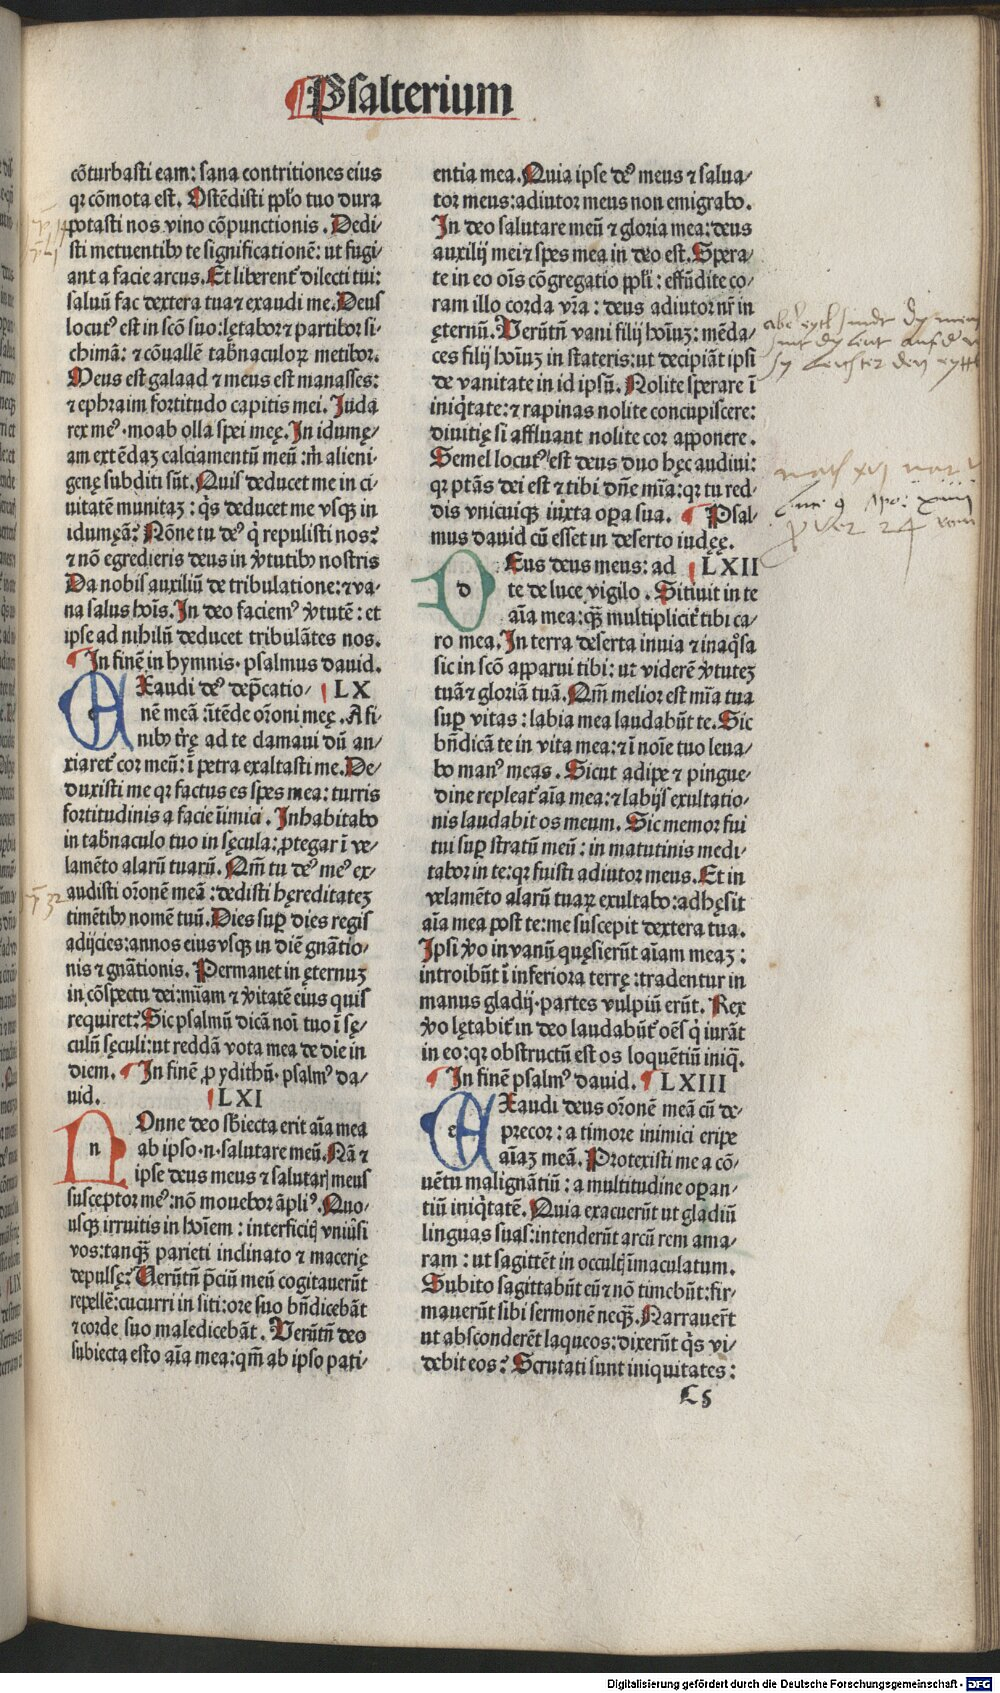 Psalterium
cōturbasti eam: sana contritiones eius
qꝛ cōmota est. Ostēdisti pplo tuo dura
potasti nos vino cōpunctionis. Dedi⸗
sti metuentibꝰ te significationē: ut fugi
ant a facie arcus. Et liberent̉ dilecti tui:
saluū fac dextera tua ⁊ exaudi me. Deus
locutꝰ est in scō suo: lętabor ⁊ partibor si⸗
chimā: ⁊ cōuallē tabnaculoꝝ metibor.
Meus est galaad ⁊ meus est manasses:
⁊ ephraim fortitudo capitis mei. Juda
rex meꝰ· moab olla spei meę. In idumę⸗
am extēdaꝫ calciamentū meū: m̄ alieni⸗
genę subditi sūt. Quis deducet me in ci⸗
uitatē munitaꝫ: q̇s deducet me vsqꝫ in
idumęā? Nōne tu deꝰ q̇ repulisti nos?
⁊ nō egredieris deus in v̓tutibꝰ nostris
Da nobis auxiliū de tribulatione: ⁊ va⸗
na salus hoīs. In deo faciemꝰ v̓tutē: et
ipse ad nihilū deducet tribulātes nos.
In finē in hymnis· psalmus dauid.
EXaudi deꝰ dep̄catio⸗ LX
nē meā: ītēde orōni meę. A fi⸗
nibꝰ tr̄ę ad te clamaui dū an⸗
xiaret̉ cor meū: ī petra exaltasti me. De⸗
duxisti me qꝛ factus es spes mea: turris
fortitudinis a facie īimici. Inhabitabo
in tabnaculo tuo in sęcula: ꝓtegar ī ve⸗
lamēto alarū tuarū. Qm̄ tu deꝰ meꝰ ex⸗
audisti orōnē meā: dedisti hęreditateꝫ
timētibꝰ nomē tuū. Dies sup dies regis
adijcies: annos eius vsqꝫ in diē gnātio⸗
nis ⁊ gnātionis. Permanet in ęternuꝫ
in cōspectu dei: mīam ⁊ v̓itatē eius quis
requiret? Sic psalmū dicā noī tuo ī sę⸗
culū sęculi: ut reddā vota mea de die in
diem. In finē ꝓ ydithū· psalmꝰ da⸗
uid. LXI
NOnne deo sbiecta erit aīa mea
ab ipso·n·salutare meū. Nā ⁊
ipse deus meus ⁊ salutaris meus
susceptor meꝰ: nō mouebor āpliꝰ. Quo⸗
usqꝫ irruitis in hoīem: interficitis vniūsi
vos: tanqꝫ parieti inclinato ⁊ macerię
depulsę? Uerūtn̄ p̄ciū meū cogitauerūt
repellē: cucurri in siti: ore suo bn̄dicebāt
⁊ corde suo maledicebāt. Verūtn̄ deo
subiecta esto aīa mea: qm̄ ab ipso pati⸗
entia mea. Quia ipse deꝰ meus ⁊ salua⸗
tor meus: adiutor meus non emigrabo.
In deo salutare meū ⁊ gloria mea: deus
auxilij mei ⁊ spes mea in deo est. Spera⸗
te in eo oīs cōgregatio ppli: effūdite co⸗
ram illo corda vr̄a: deus adiutor nr̄ in
ęternū. Verūtn̄ vani filij hoīuꝫ: mēda⸗
ces filij hoīuꝫ in stateris: ut decipiāt ipsi
de vanitate in id ipsū. Nolite sperare ī
iniq̇tate: ⁊ rapinas nolite concupiscere:
diuitię si affluant nolite cor apponere.
Semel locutꝰ est deus duo hęc audiui:
qꝛ ptās dei est ⁊ tibi dn̄e mīa: qꝛ tu red⸗
dis vnicuiqꝫ iuxta opa sua. Psal⸗
mus dauid cū esset in deserto iudęę.
DEus deus meus: ad LXII
te de luce vigilo. Sitiuit in te
aīa mea: qꝫ multiplicit̉ tibi ca⸗
ro mea. In terra deserta inuia ⁊ inaq̇sa
sic in scō apparui tibi: ut viderē v̓tuteꝫ
tuā ⁊ gloriā tuā. Qm̄ melior est mīa tua
sup vitas: labia mea laudabūt te. Sic
bn̄dicā te in vita mea: ⁊ ī noīe tuo leua⸗
bo manꝰ meas. Sicut adipe ⁊ pingue⸗
dine repleat̉ aīa mea: ⁊ labijs exultatio⸗
nis laudabit os meum. Sic memor fui
tui sup stratū meū: in matutinis medi⸗
tabor in te: qꝛ fuisti adiutor meus. Et in
velamēto alarū tuaꝝ exultabo: adhęsit
aīa mea post te: me suscepit dextera tua.
Ipsi v̓o in vanū quęsierūt aīam meaꝫ:
introibūt ī inferiora terrę: tradentur in
manus gladij· partes vulpiū erūt. Rex
v̓o lętabit̉ in deo laudabūt̉ oēs q̇ iurāt
in eo: qꝛ obstructū est os loquētiū iniq̄.
In finē psalmꝰ dauid. LXIII
EXaudi deus orōnē meā cū de⸗
precor: a timore inimici eripe
aīaꝫ meā. Protexisti me a cō⸗
uētu malignātiū: a multitudine opan⸗
tiū iniq̇tatē. Quia exacuerūt ut gladiū
linguas suas: intenderūt arcū rem ama⸗
ram: ut sagittēt in occultis īmaculatum.
Subito sagittabūt eū ⁊ nō timebūt: fir⸗
mauerūt sibi sermonē neqꝫ. Narrauer̄t
ut absconderēt laqueos: dixerūt q̇s vi⸗
debit eos? Scrutati sunt iniquitates:
C 8
Digitalisierung gefördert durch die Deutsche Forschungsgemeinschaft - DFG